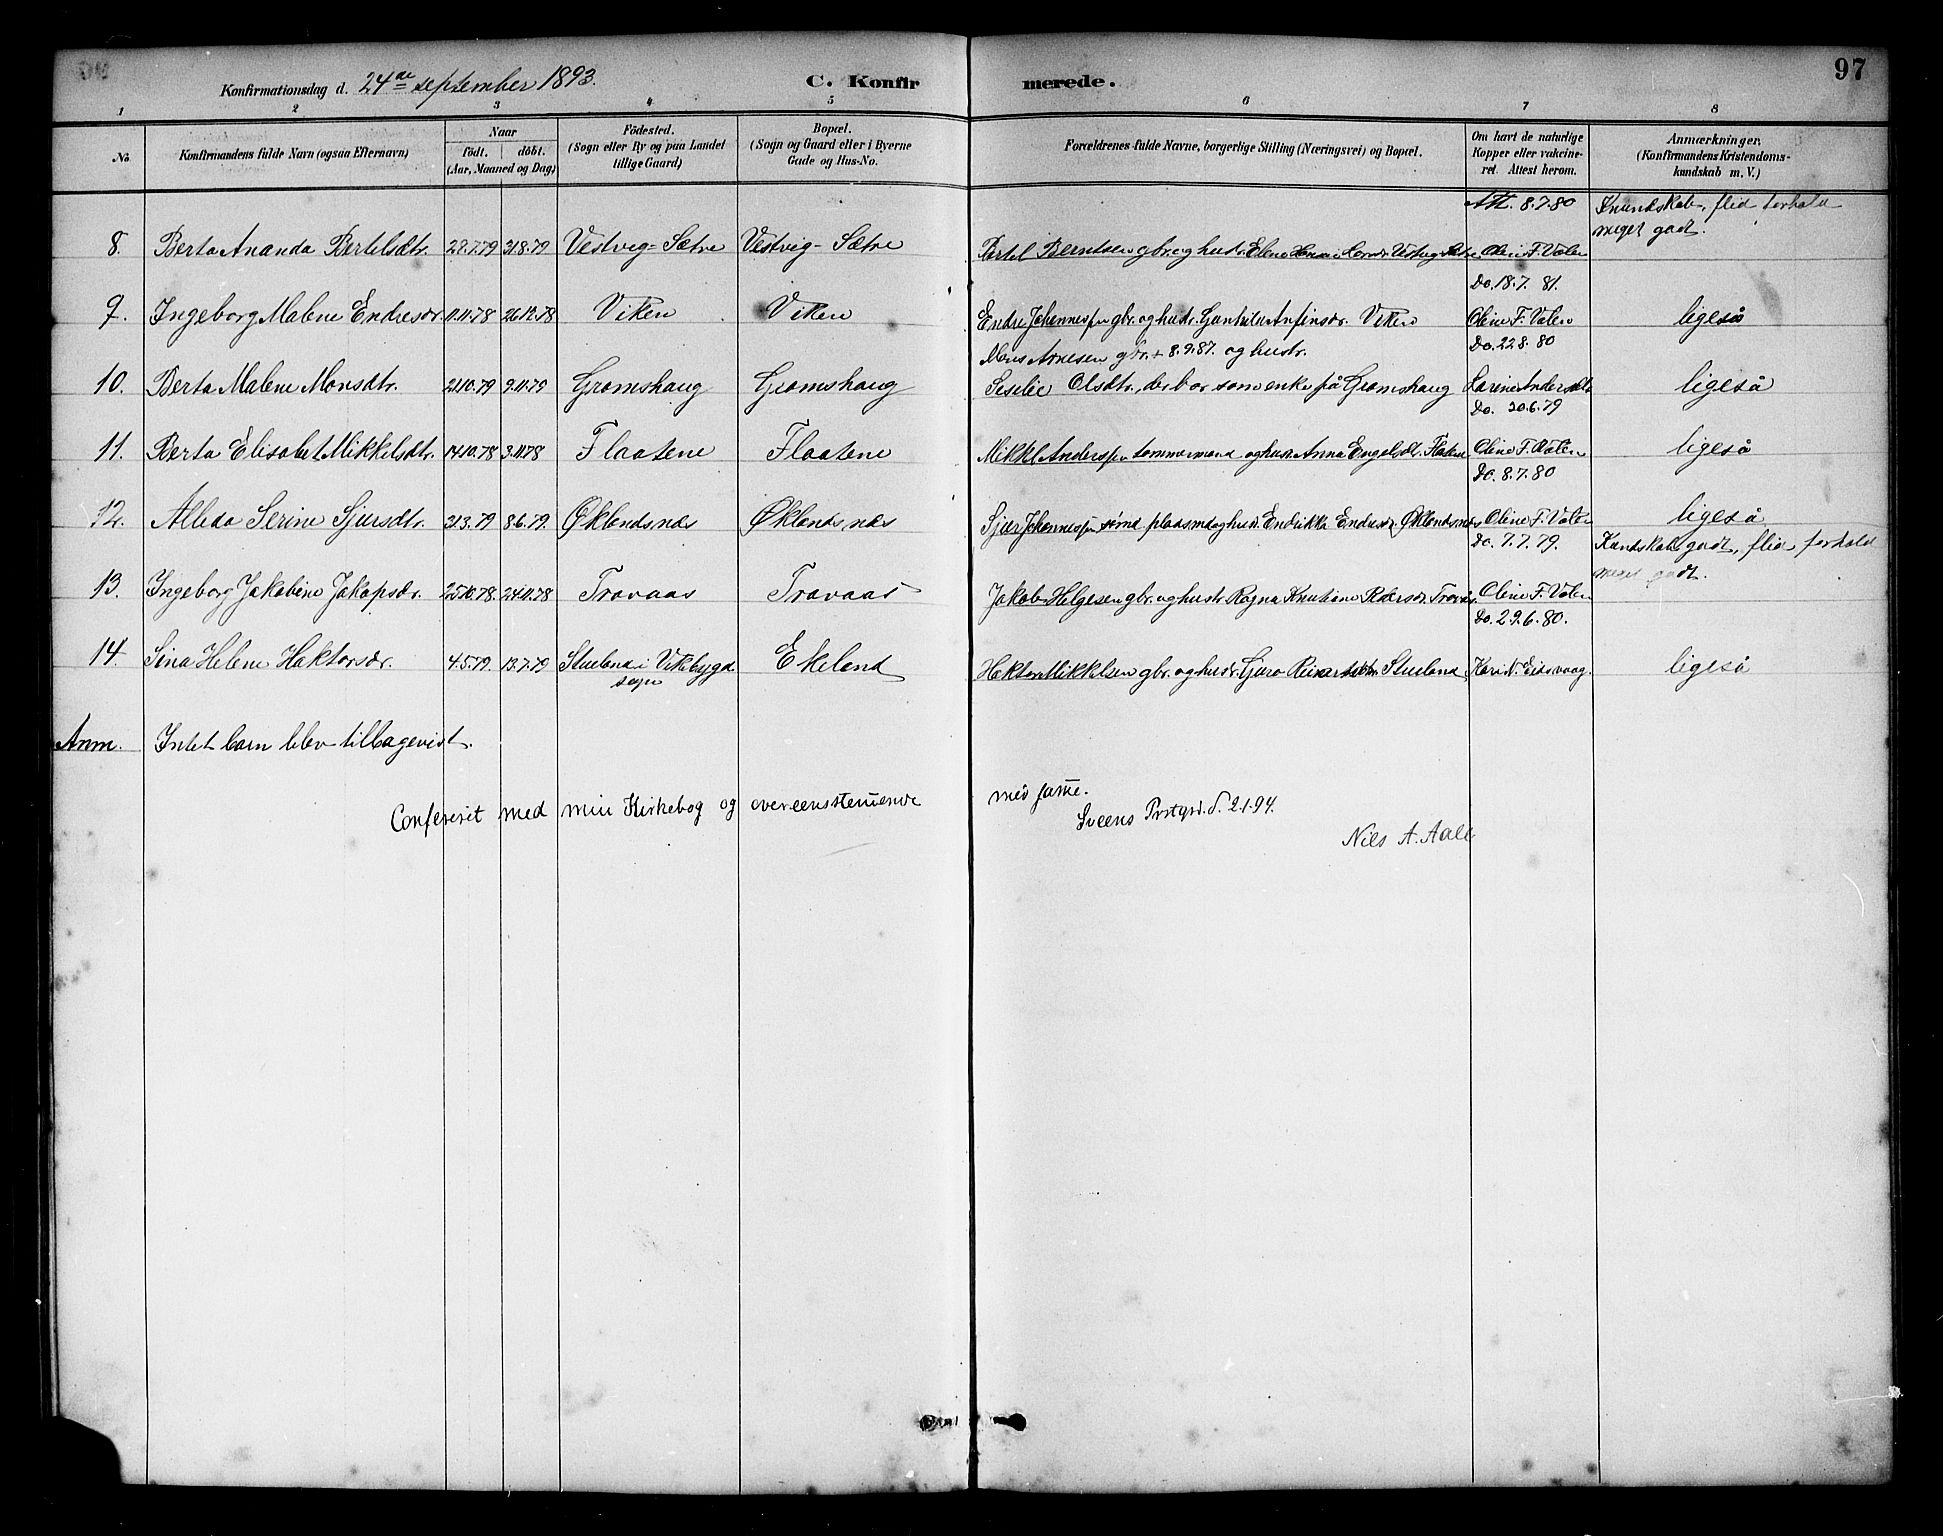 97
Konfirmationsdag d. 24de september 1893.
C. Konfirmerede.
1 2 3 4 5 6 7 8
No.
Konfirmandens fulde Navn (ogsaa Efternavn)
Naar
født. døbt.
(Aar, Maaned og Dag)
Födested.
(Sogn eller By og paa Landet
tillige Gaard)
Bopæl.
(Sogn og Gaard eller i Byerne
Gade og Hus-No.
Forældrenes fulde Navne, borgerlige Stilling (Næringsvei) og Bopæl.
Om havt de naturlige
Kopper eller vakcine-
ret. Attest herom.
Anmærkninger.
(Konfirmandens Kristendoms-
kundskab m. V.)
Att. 8.7.80 Kundskab, flid forhold
meget godt.
8. Berta Ananda Bertelsdtr. 22.7.79 31.8.79 Vestvig-Sætre Vestvig-Sætre Bertel Berntsen gbr. og hustr. Vestvig Sætre Oline F. Valen
Do. 18.7. 81.
9. Ingeborg Malene Endresdr. 11.11.78 26.12.78 Viken Viken Endre Johannessen gbr. og hustr. Gunhilda Anfinsdr. Viken Oline F. Valen ligeså
Mons Arnesen gbr. + 8.9.87. og hustr. Do. 22.8.80
10. Berta Malene Monsdtr. 21.10.79 9.11.79 Gromshaug Gromshaug Seselie Olsdtr, der bor som enke på Gromshaug Larine Andersdtr ligeså
Do. 20.6.79
11. Berta Elisabet Mikkelsdtr. 14.10.78 3.11.78 Flaatene Flaatene Mikkl Anderssen tømmermand og hustr. Anna Engelsdtr. Flaten Oline F. Valen ligeså
Do. 8.7.80
12. Alleda Serine Sjursdtr. 31.3.79 8.6.79. Øklandsnæs Øklandsnæs Sjur Johannessen plassmd og hustr. Endrikke Endresdr. Øklandsnæs Oline F. Valen ligeså
Do. 7.7.79. Kundskab godt, flid forhold
meget godt.
13. Ingeborg Jakobine Jakopsdr. 25.10.78. 24.11.78 Trovaas Trovaas Jakob Helgesen gbr. og hustr. Ragna Knutiane Trovaas. Oline F. Valen
Do. 29.6.80.
14. Sina Helene Haktorsdr. 4.5.79. 13.7.79 Stueland i Vikebygd Ekeland Haktor Mikkelsen gbr. og hustr. Guro Reinertsdtr Stueland, Kari N. Eidsvaag. ligeså
sogn
Anm. Intet barn blev tilbagevist.
Confereret med min Kirkebog og overensstemmende med samme.
Sveens Prstgrd. d. 2.1.94.
Nils A. Aall